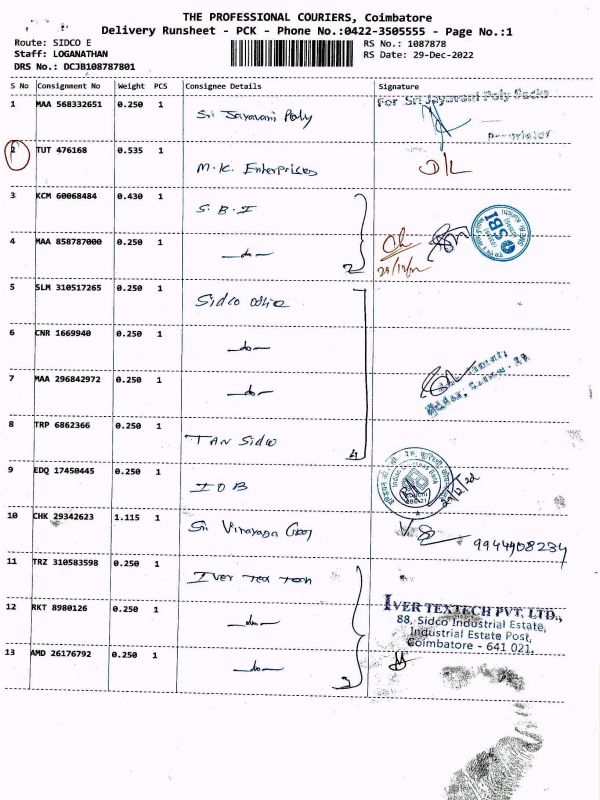 THE PROFESSIONAL COURIERS, Coimbatore
Delivery Runsheet - PCK - Phone No.:0422-3505555 - Page No.:1
Route: SIDCO E
RS No.: 1087878
Staff: LOGANATHAN
RS Date: 29-Dec-2022
DRS No.: DCJB108787801
S No Consignment No Weight PCS Consignee Details Signature
1 MAA 568332651 0.250 1 Sri Jayavani Poly For Sri Jayavani Poly Packs
2 TUT 476168 0.535 1 M.K. Enterprises D/L
3 KCM 60068484 0.430 1 S.B.I SBI
4 MAA 858787000 0.250 1 -do- 2
5 SLM 310517265 0.250 1 Sidco office
6 CNR 1669940 0.250 1 -do-
7 MAA 296842972 0.250 1 -do-
8 TRP 6862366 0.250 1 TAN Sidco 4
9 EDQ 17450445 0.250 1 IOB 29/12/22
10 CHK 29342623 1.115 1 Sri Vinayaga 9944908234
11 TRZ 310583598 0.250 1 Iver Tex
12 RKT 8980126 0.250 1 -do- IVER TEXTECH PVT. LTD.,
88, Sidco Industrial Estate,
Industrial Estate Post,
Coimbatore - 641 021.
13 AMD 26176792 0.250 1 -do- 3